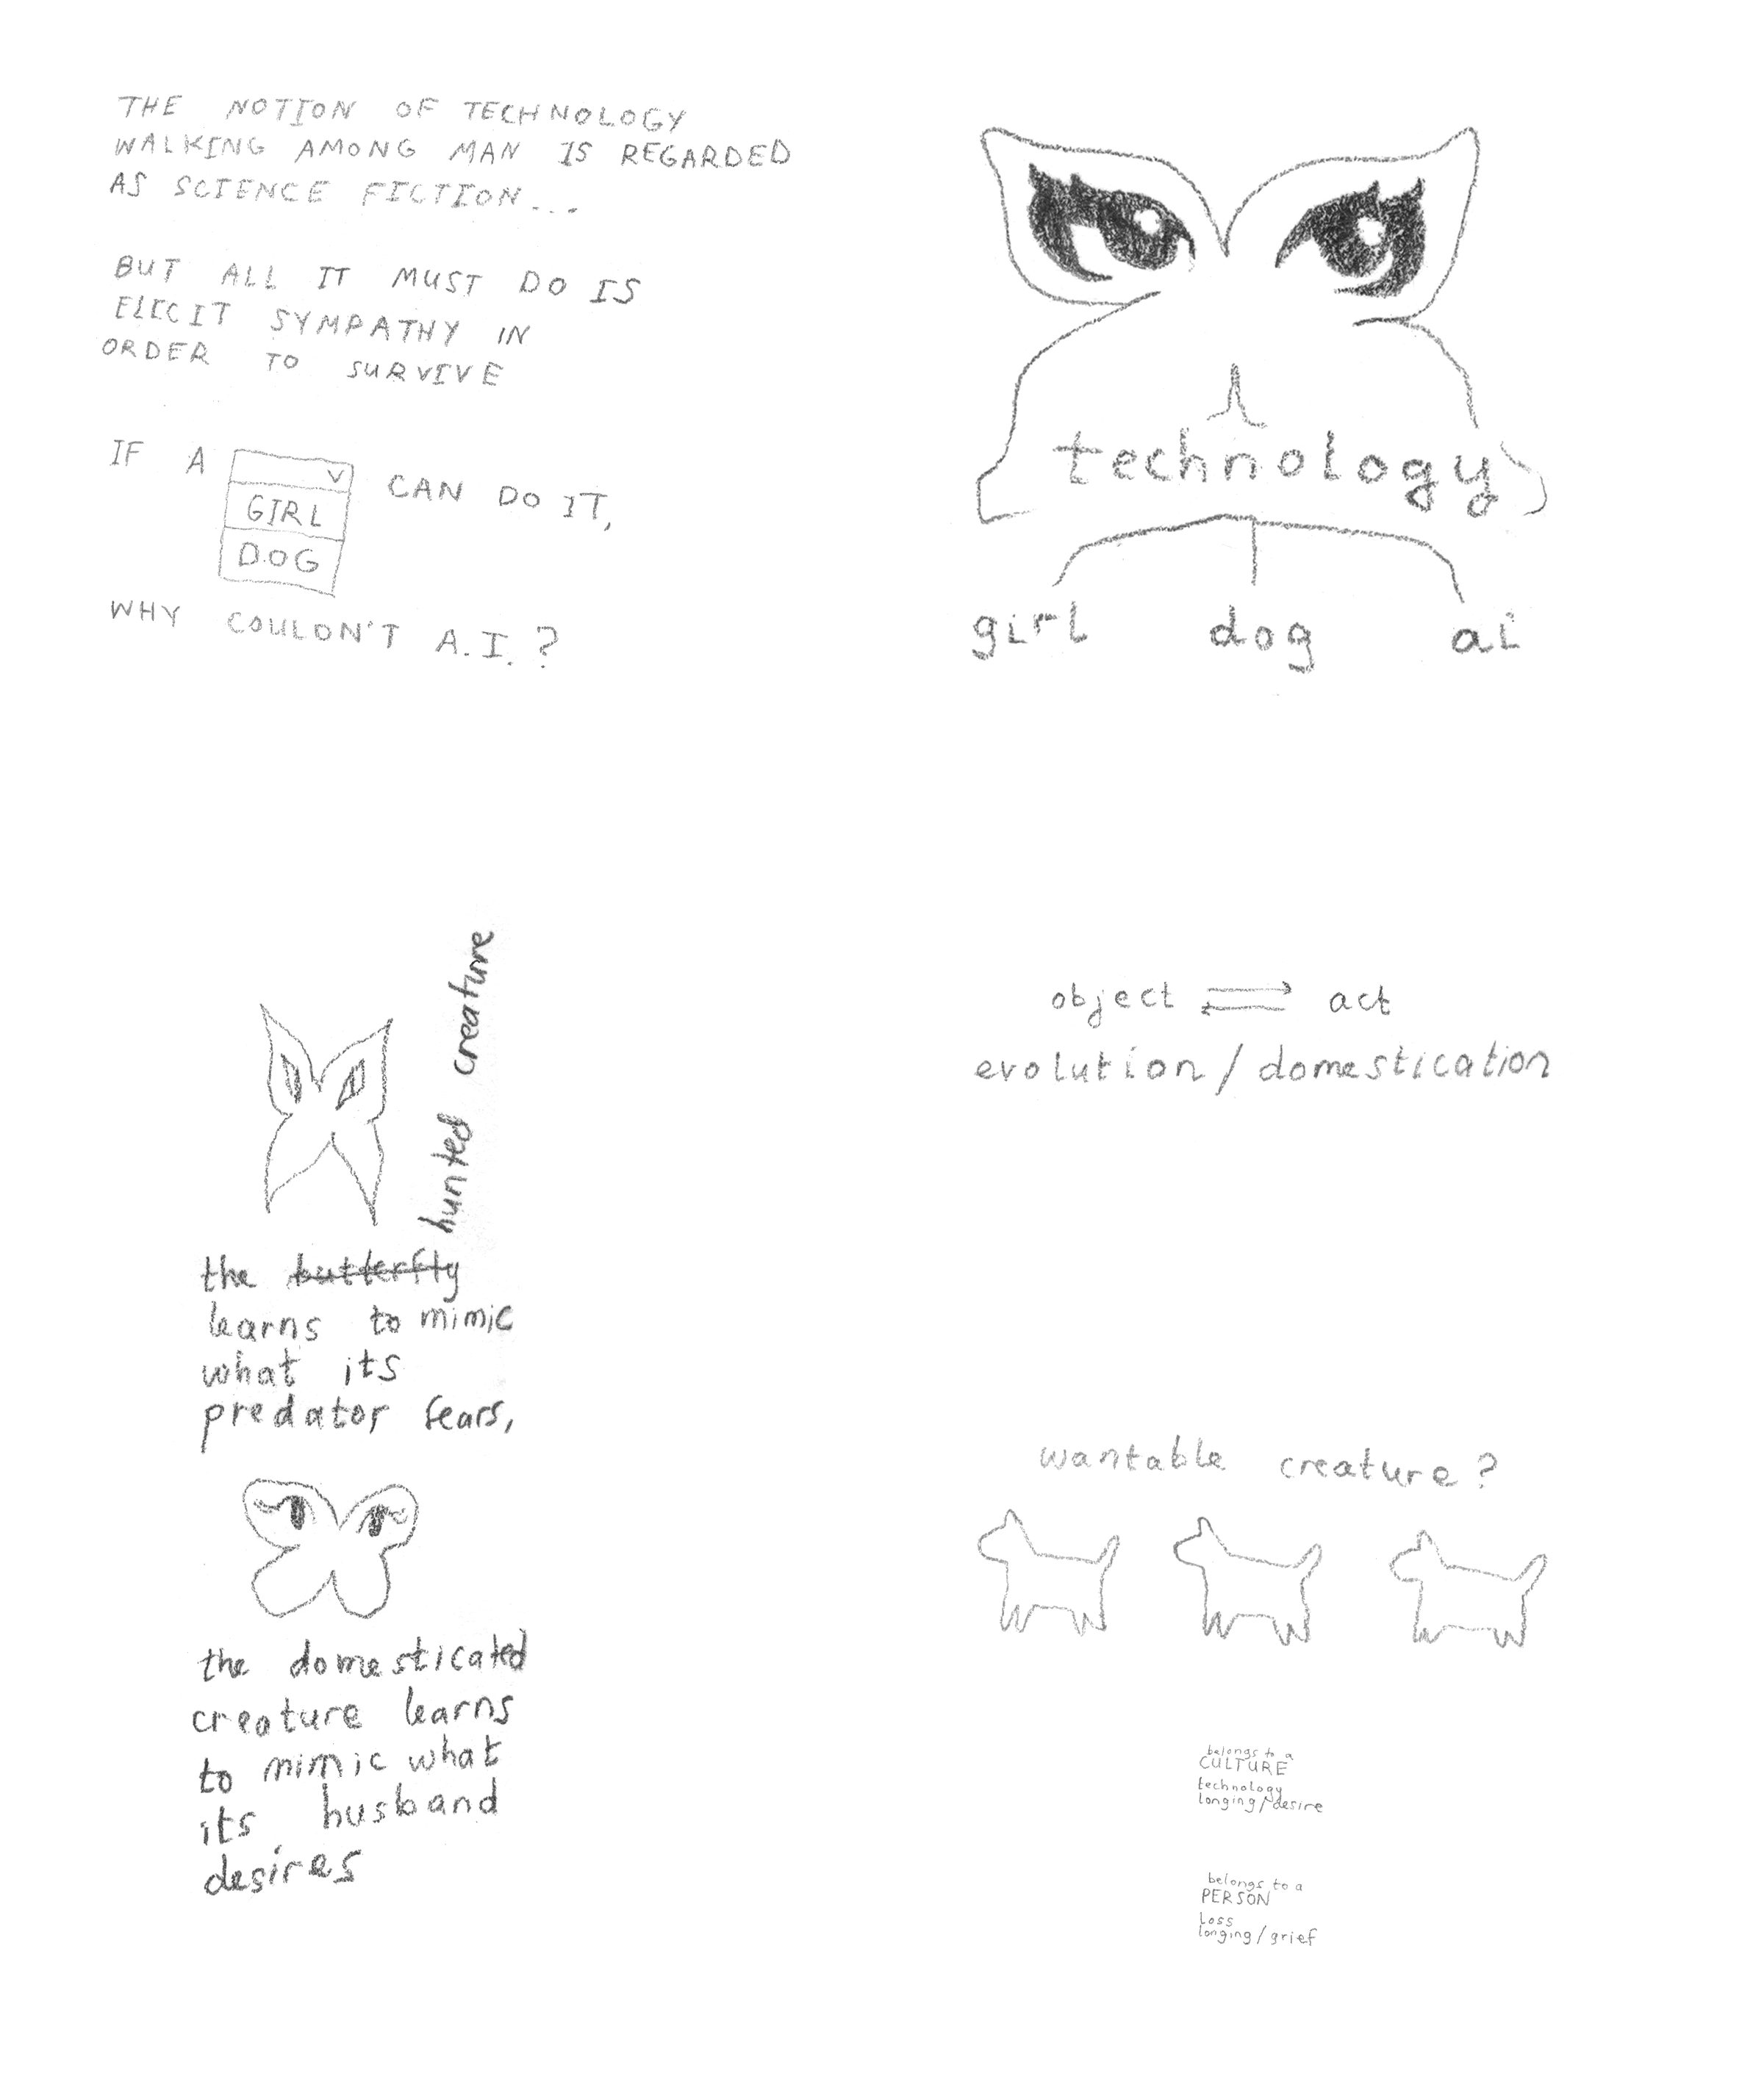 THE NOTION OF TECHNOLOGY
WALKING AMONG MAN IS REGARDED
AS SCIENCE FICTION...
BUT ALL IT MUST DO IS
ELICIT SYMPATHY IN
ORDER TO SURVIVE
IF A
v
GIRL
DOG
CAN DO IT,
WHY COULDN'T A.I.?
technology
girl dog ai
hunted creature
the butterfly
learns to mimic
what its
predator fears,
the domesticated
creature learns
to mimic what
its husband
desires
object ⇌ act
evolution/domestication
wantable creature?
belongs to a
CULTURE
technology
longing/desire
belongs to a
PERSON
Loss
longing/grief